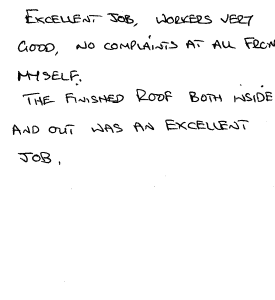 EXCELLENT JOB, WORKERS VERY
GOOD, NO COMPLAINTS AT ALL FROM
MYSELF.
THE FINISHED ROOF BOTH INSIDE
AND OUT WAS AN EXCELLENT
JOB.